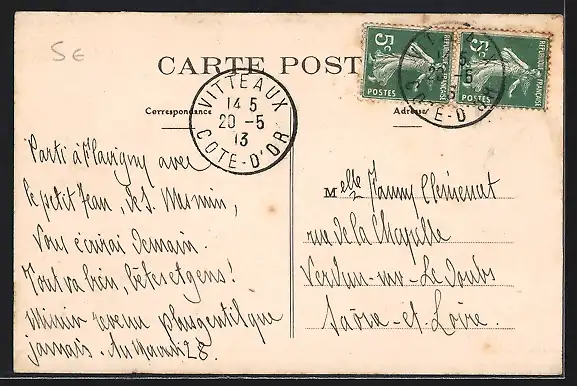 5€
CARTE POST
Correspondance
Adresse
VITTEAUX
14 5
20 - 5
13
COTE-D'OR
5c
POSTES
REPUBLIQUE FRANÇAISE
5c
POSTES
REPUBLIQUE FRANÇAISE
COTE-D'OR
Parti à Flavigny avec
le petit Jean, de S. Mesmin,
Vous écrirai demain.
Tout va bien, bêtes et gens!
Minin revenu plus gentil que
jamais. Au 28.
Melle Fanny Clémencet
rue de la Chapelle
Verdun-sur-Le Doubs
Saône-et-Loire.